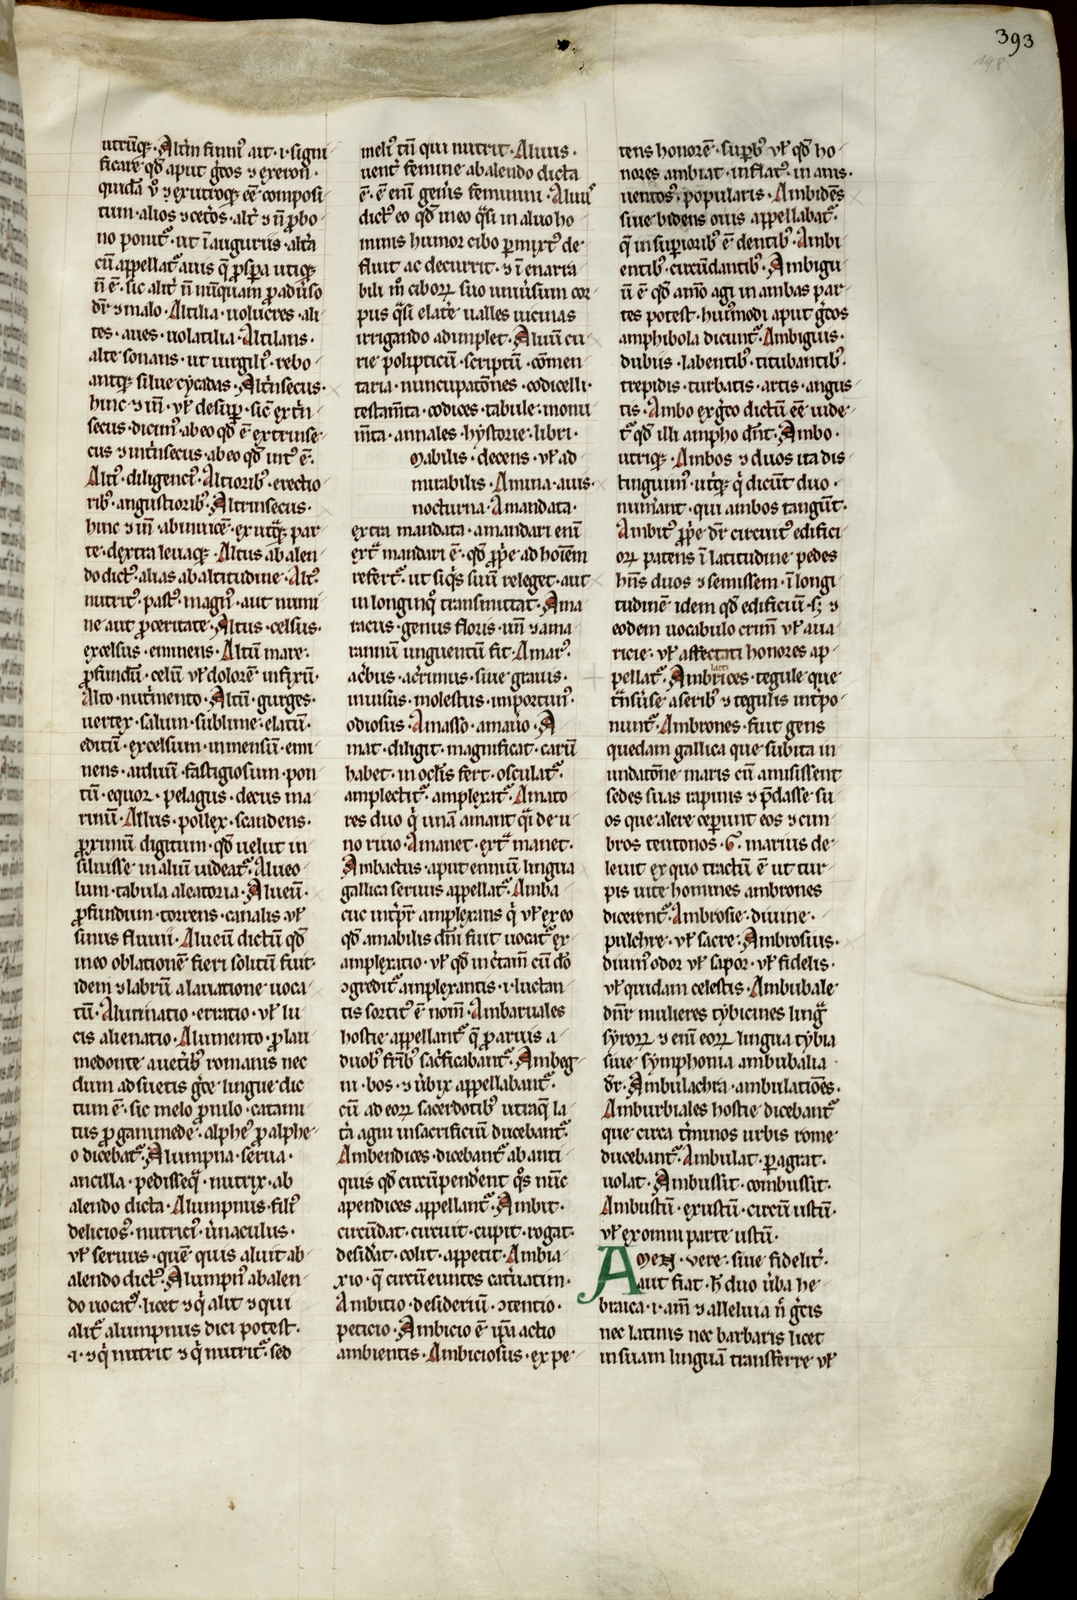 393
198
utrūqꝫ· Altm̄ finiu᷒ ait· i· signi
ficare qd̄ aput gͨos ⁊ exeron·
quidā v̄ ⁊ ex utroqꝫ ee᷒ composi
tum· alios ⁊ cetōs· alt᷒ ⁊ n̄ ꝓ bo
no ponit᷒· ut ī auguriis· altā
cū appellat᷒ auis q̄ ꝓspa utiqꝫ
n̄ ē· sic alit᷒ n̄ nūquam ꝓ adūso
dr̄ ⁊ malo· Altilia· uolucres· ali
tes· aues· uolatilia· Altilans·
alte sonans· ut uirgili᷒· rebo
antqꝫ silue cycadas· Alt̄nsecus·
hinc ⁊ in̄· vl̄ desup· sic᷒ ext̄n
secus dicim᷒· ab eo qd̄ ē extrinse
cus ⁊ int̄nsecus· ab eo qd̄ int᷒ ē·
Alti᷒· diligenci᷒· Altiorib᷒· erectio
rib᷒· angustiorib᷒· Altrinsecus·
hinc ⁊ in̄· ab inuicē· ex utq̄ꝫ par
te· dextra leuaqꝫ· Altus ab alen
do dict᷒· alias ab altitudine· Alt᷒·
nutrit᷒· past᷒· magn᷒· aut numi
ne aut ꝓceritate· Altus· celsus·
excelsus· eminens· Altū mare·
ꝓfundū· celū vl̄ dolorē infixū·
Alto· nut̄mento· Altū· gurges·
uertex· salum· sublime· elatū·
editū· excelsum· inmensū· emi
nens· arduū· fastigiosum· pon
tū· equor· pelagus· decus ma
rinū· Allus· pollex· scandens·
ꝓximū digitum· qd̄ uelut in
siluisse in aliū uideat᷒· Alueo
lum· tabula aleatoria· Alueū·
ꝓfundum· torrens· canalis vl̄
sinus fluuii· Alueū dictū qd̄
in eo oblationē fieri solitū fuit·
idem ⁊ labrū a lauatione uoca
tū· Alucinatio· erratio· vl̄ lu
cis alienatio· Alumento· ꝓ lau
medonte auctib᷒ romanis nec
dum adsuetis gͨce lingue dic
tum ē· sic melo ꝓ nilo· catami
tus ꝓ ganimede· alphe᷒ ꝓ alphe
o dicebat᷒· Alumpna· serua·
ancilla· pedisseq̄· nutrix· ab
alendo dicta· Alumpnus· fili᷒
delicios᷒· nutrici᷒· ūnaculus·
vl̄ seruus· quē quis aluit ab
alendo dict᷒· Alumpn᷒ ab alen
do uocat᷒· licet ⁊ q̄ alit ⁊ qui
alit᷒ alumpnus dici potest·
·i· ⁊ q̄ nutrit ⁊ q̄ nutrit᷒· sed
meli᷒ tn̄ qui nutrit· Aluus·
uent᷒ femine ab alendo dicta
ē· ē enī genus feminini· Aluu᷒
dict᷒ eo qd̄ in eo q̄si in aluo ho
minis humor cibo pmixt᷒ de
fluit ac decurrit· ⁊ ī enarra
bili m̄ ciboꝝ suo uniūsum cor
pus q̄si elate᷒ ualles uicinas
irrigando adimplet· Aluū cu
rie polipticū· scriptū· cōmen
taria· nuncupatōnes· codicelli·
testam̄ta· codices· tabule· monu
m̄ta· annales· hystorie· libri·
Mabilis· decens· vl̄ ad
mirabilis· Amina· auis·
nocturna· Amandata·
extra mandata· amandari enī
ext᷒ mandari ē· qd̄ ꝓpe ad hoīem
refert᷒· ut siq̄s suū releget· aut
in longinq̄ transmittat· Ama
racus· genus floris· un̄ ⁊ ama
rannū unguentū fit· Amar᷒·
acb̄us· acrimus· siue grauis·
inuisus· molestus· importun᷒·
odiosus· Amasso· amauo· A
mat· diligit· magnificat· carū
habet· in oclis fert· osculat᷒·
amplectit᷒· amplexat᷒· Amato
res duo q̄ unā amant q̄si de u
no riuo· Amanet· ext᷒ manet·
Ambactus· aput enniū lingua
gallica seruus appellat᷒· Amba
cuc int̄pr᷒ amplexans q̄ vl̄ ex eo
qd̄ amabilis dn̄i fuit uocat᷒ ex
amplexatio· vl̄ qd̄ in c̄tam̄ cū do
ɔgredit᷒ amplexantis· i· luctan
tis sortit᷒ ē nom̄· Ambaruales
hostie appellant᷒ q̄ parius a
duob᷒ frīb᷒ sac̄ficabant᷒· Ambeg
ni· bos· ⁊ ūbix appellabant᷒·
cū ad eoꝝ sacerdotib᷒ utraq̄ la
ta᷒ agni in sacrificiū ducebant᷒·
Ambendices· dicebant᷒ ab anti
quis qd̄ circūpend᷒ent q̄s nūc
apendices appellant᷒· Ambit·
circūdat· circuit· cupit· rogat·
desidat· colit· appetit· Ambia
xio· q̄ circū euntes cat̄uatim·
Ambitio· desideriū· ɔtentio·
peticio· Ambicio ē ip̄a actio
ambientis· Ambiciosus· expe
tens honorē· supb᷒ vl̄ qd̄ ho
nores ambiat· inflat᷒· inanis·
uentos᷒· popularis· Ambidēs
siue bidens ouis appellabat᷒·
q̄ in supiorib᷒ ē dentib᷒· Ambi
entib᷒· circūdantib᷒· Ambigu
ū ē qd̄ amo agi in ambas par
tes potest· hui᷒modi aput gͨos
amphibola dicunt᷒· Ambiguis·
dubiis· labentib᷒· titubantib᷒·
trepidis· turbatis· artis· angus
tis· Ambo ex gͨco dictū ee᷒ uide
t᷒ qd̄ illi ampho dn̄t· Ambo·
utriqꝫ· Ambos ⁊ duos ita dis
tinguim᷒· utq̄ꝫ q̄ dicūt duo·
num̄ant· qui ambos tangūt·
Ambit᷒ ꝓpe dr̄ circuit᷒ edifici
oꝝ patens ī latitudine pedes
hn̄s duos ⁊ semissem· ī longi
tudinē idem qd̄ edificiū· sꝫ ⁊
eodem uocabulo crim̄ vl̄ aua
ricie· vl̄ affectati honores ap
pellat᷒· Ambrices· tegule que
tn̄suse aserib᷒ ⁊ tegulis int̄po
nunt᷒· Ambrones· fuit gens
quedam gallica que subita in
undatōne maris cū amisissent
sedes suas rapinis ⁊ p̄dasse su
os que alere ceperunt eos ⁊ cim
bros teutonos· G· marius de
leuit ex quo tractū ē ut tur
pis uite homines ambrones
dicerent᷒· Ambrosie· diuine·
pulchre· vl̄ sacre· Ambrosius·
diuin᷒ odor vl̄ sapor· vl̄ fidelis·
vl̄ quidam celestis· Ambubale
dn̄r mulieres tybicines ling᷒
syroꝝ ⁊ enī eoꝝ lingua tybia
siue symphonia ambubalia·
dr̄· Ambulachra· ambulatiōes·
Amburbiales hostie dicebant᷒
que circa t̄minos urbis rome
ducebant᷒· Ambulat· pagrat·
uolat· Ambussit· combussit·
Ambustū· exustū· circū ustū·
vl̄ ex omni parte ustū·
Amen· vere· siue fidelit᷒·
aut fiat· h̄ duo ūba he
braica· i· am̄ ⁊ alleluia n̄ gͨcis
nec latinis nec barbaris licet
in suam linguā transferre vl̄